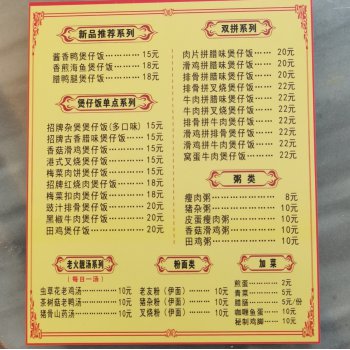 新品推荐系列
酱香鸭煲仔饭 ………… 15元
香煎海鱼煲仔饭 ……… 18元
腊鸭腿煲仔饭 ………… 18元
煲仔饭单点系列
招牌杂煲煲仔饭(多口味) 15元
招牌古香腊味煲仔饭 … 15元
香菇滑鸡煲仔饭 ……… 15元
港式叉烧煲仔饭 ……… 15元
梅菜肉饼煲仔饭 ……… 15元
招牌红烧肉煲仔饭 …… 18元
梅菜扣肉煲仔饭 ……… 18元
豉汁排骨煲仔饭 ……… 20元
黑椒牛肉煲仔饭 ……… 20元
田鸡煲仔饭 …………… 20元
双拼系列
肉片拼腊味煲仔饭 …… 20元
滑鸡拼腊味煲仔饭 …… 20元
排骨拼腊味煲仔饭 …… 20元
排骨拼叉烧煲仔饭 …… 22元
牛肉拼腊味煲仔饭 …… 22元
排骨拼牛肉煲仔饭 …… 22元
滑鸡拼排骨煲仔饭 …… 22元
滑鸡拼牛肉煲仔饭 …… 22元
窝蛋牛肉煲仔饭 ……… 22元
粥 类
瘦肉粥 ………………… 8元
猪杂粥 ………………… 10元
皮蛋瘦肉粥 …………… 10元
香菇滑鸡粥 …………… 10元
田鸡粥 ………………… 10元
老火靓汤系列
(每日一汤)
虫草花老鸡汤 ……… 10元
茶树菇老鸭汤 ……… 10元
猪骨山药汤 ………… 10元
粉面类
老友粉(伊面) …… 10元
猪杂粉(伊面) …… 10元
叉烧粉(伊面) …… 10元
加 菜
煎蛋 ………… 2元
青菜 ………… 5元
腊肠 ……… 5元/份
咖喱鱼蛋 …… 10元
秘制鸡脚 …… 10元